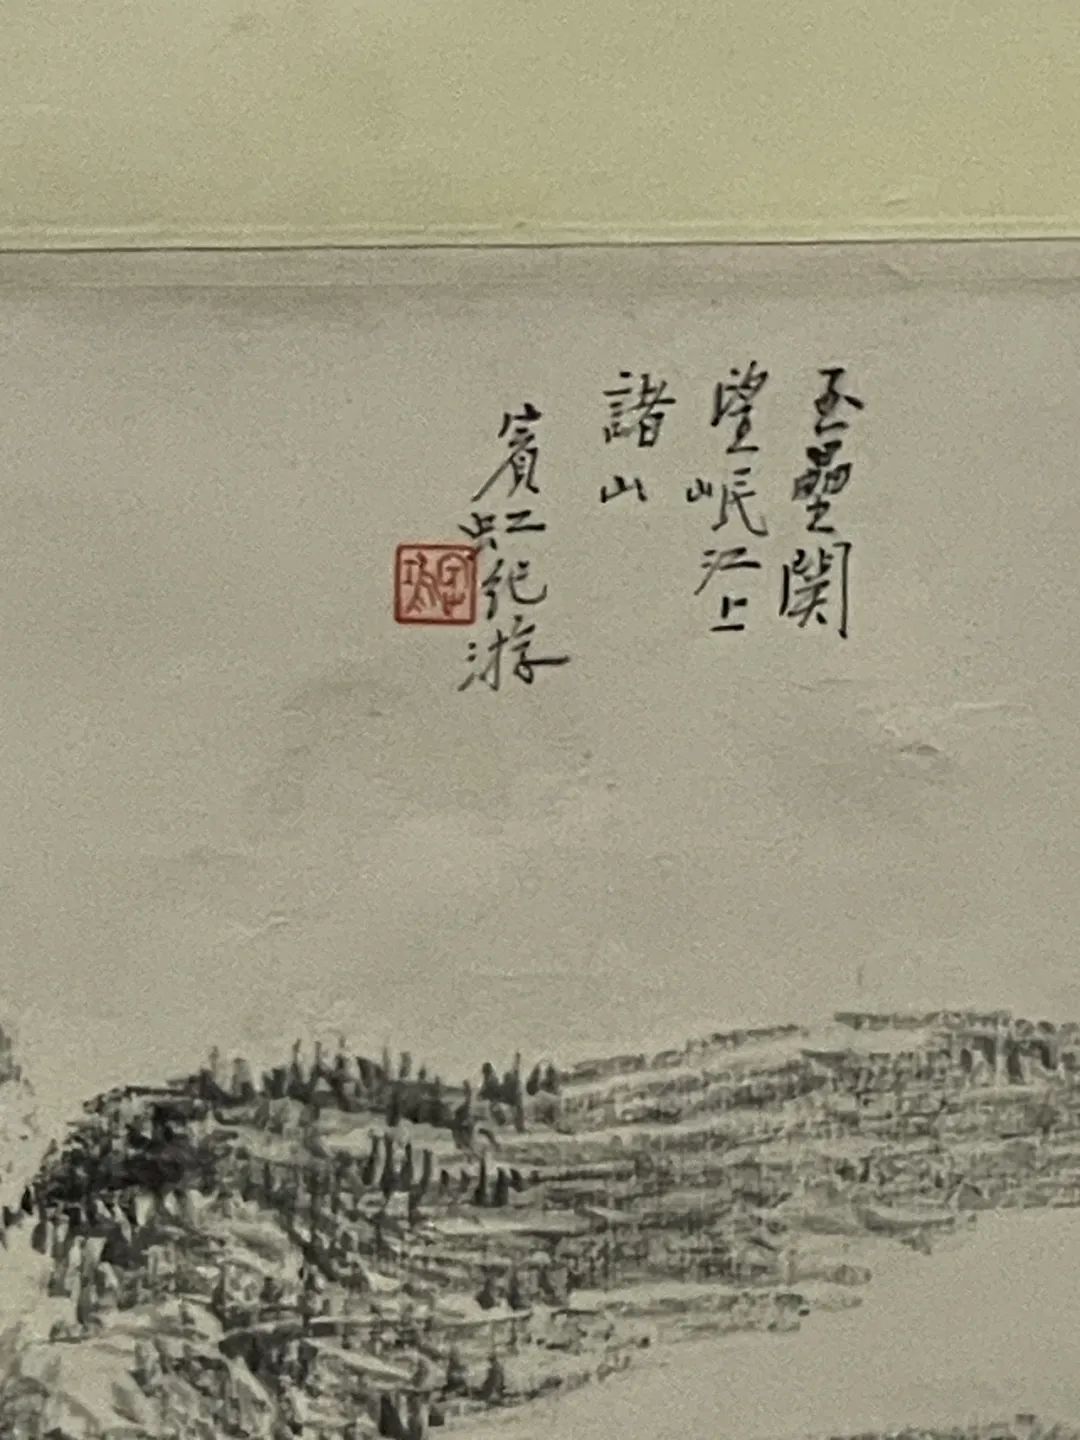 玉壘關
望岷江上
諸山
賓虹紀游